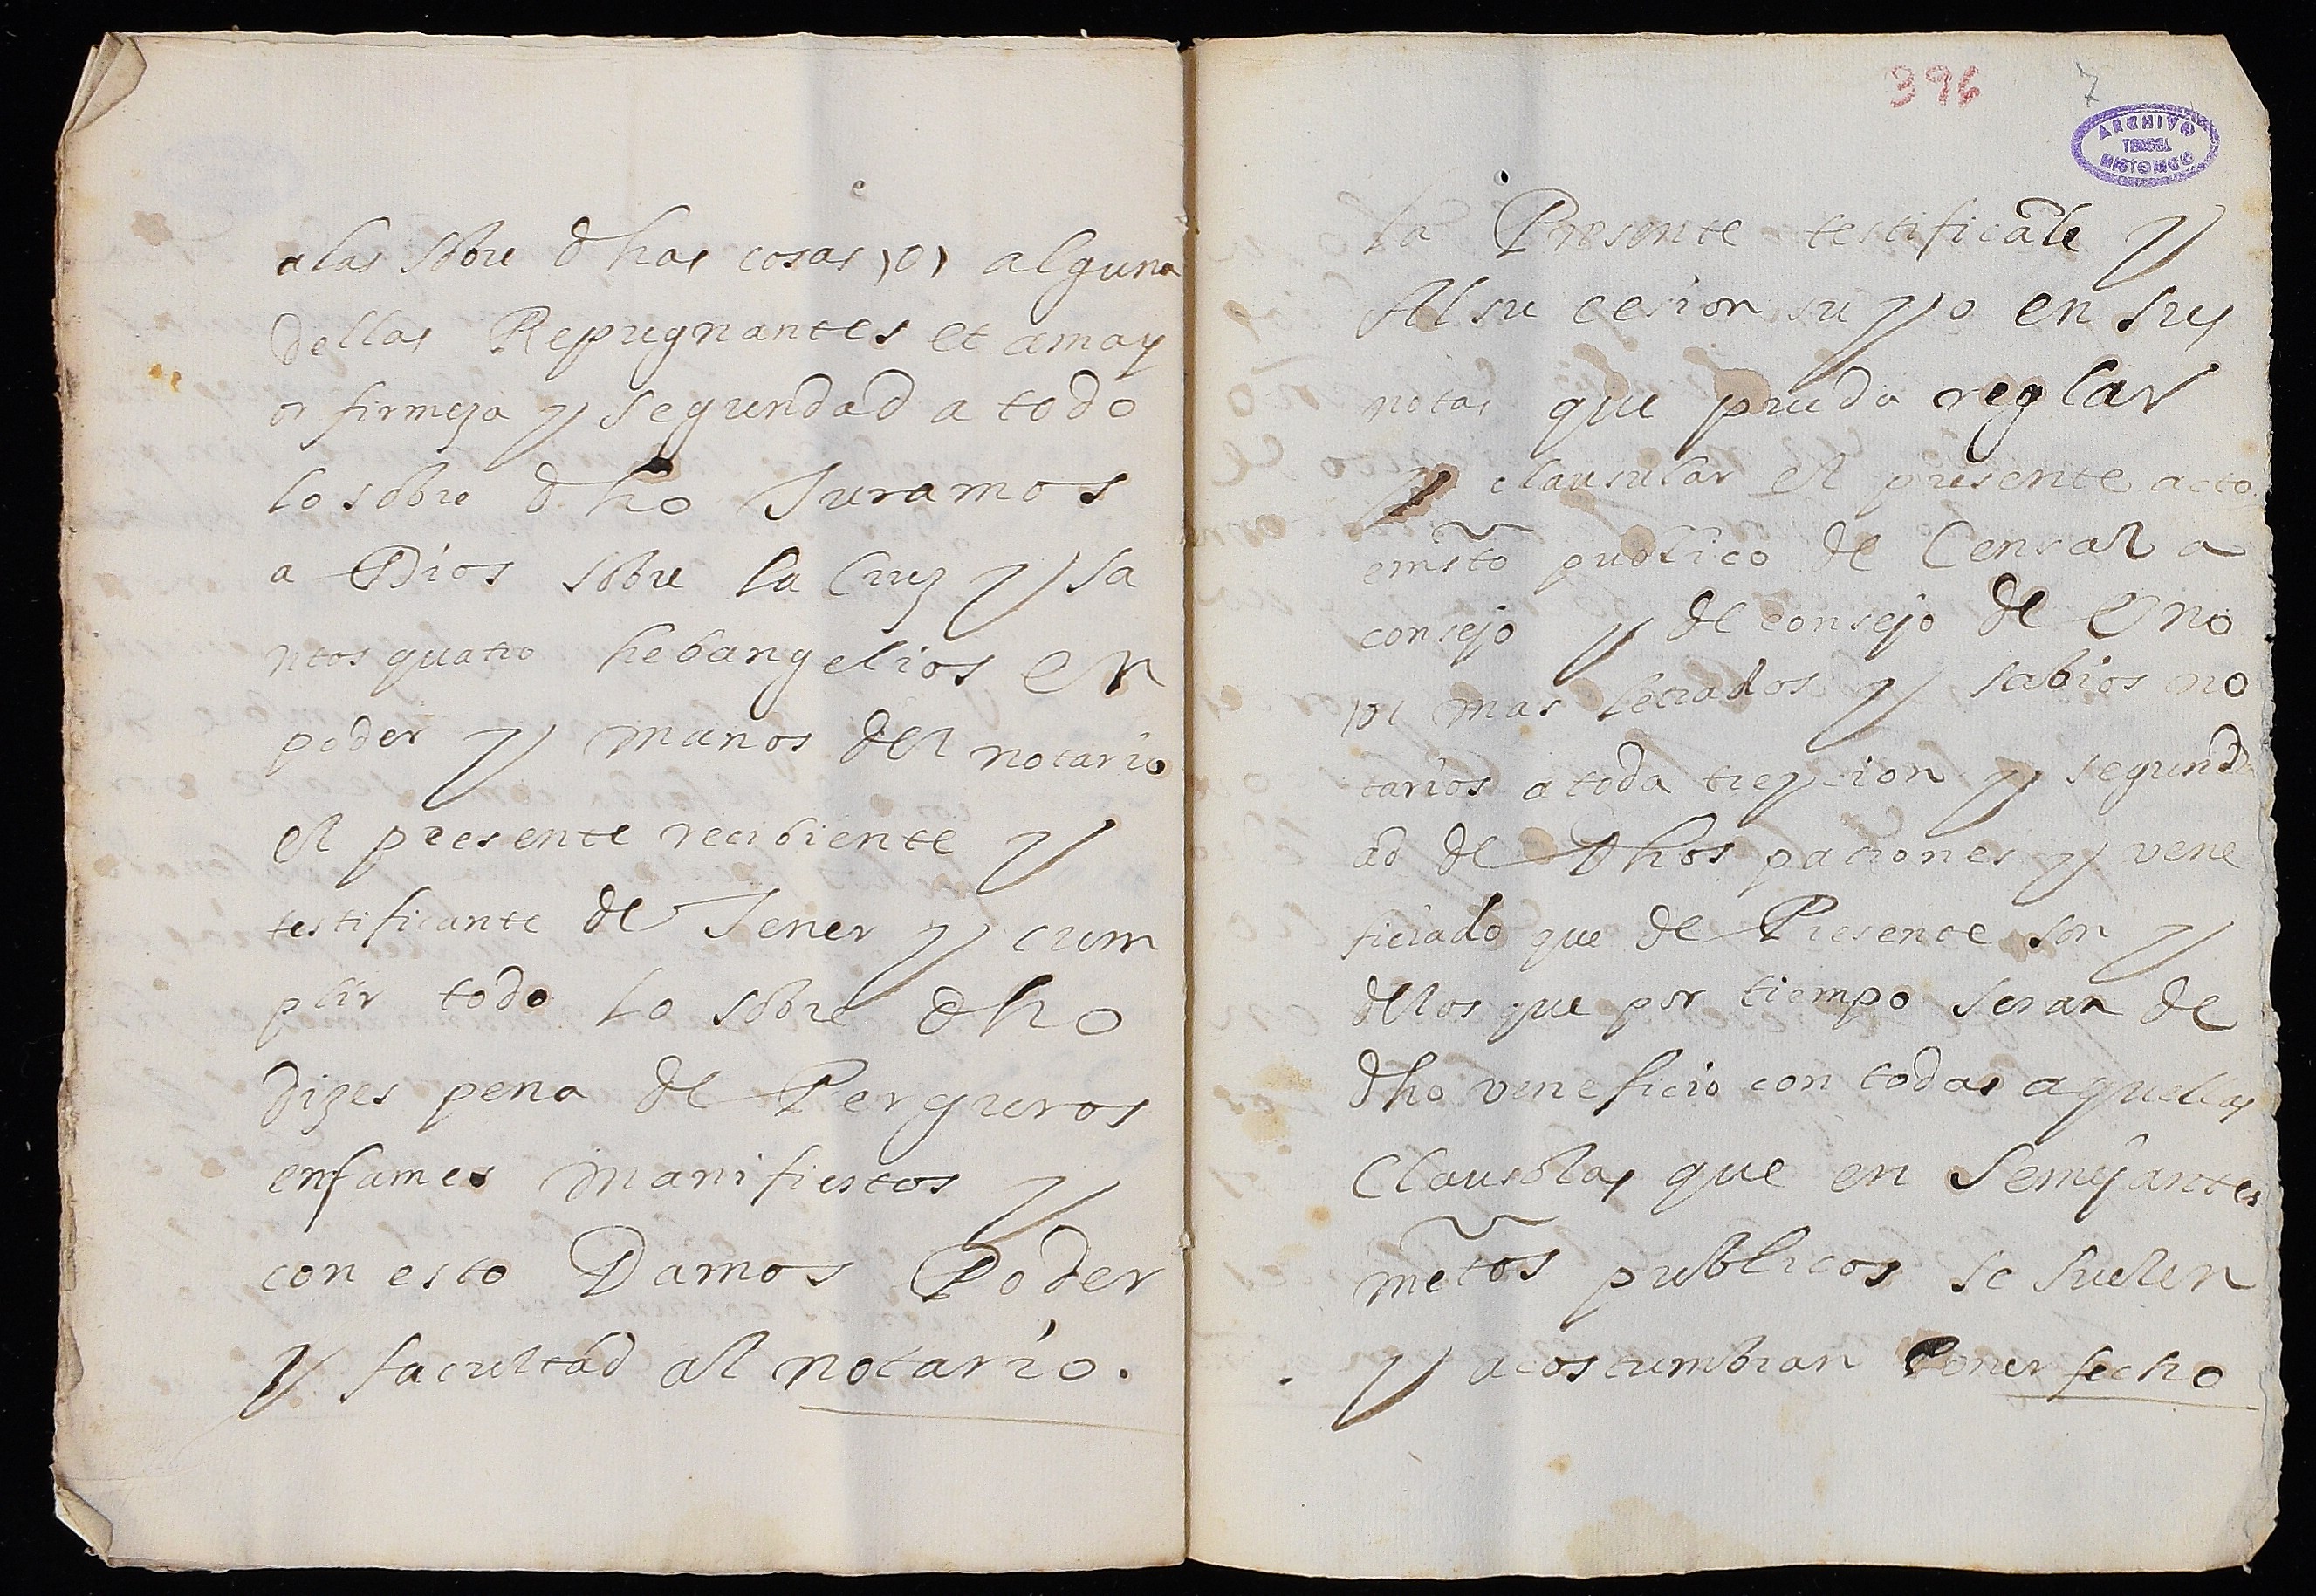 a las sobre dhas cosas ,o, alguna
dellas Repugnantes et a may
or firmeza y seguridad a todo
lo sobre dho Juramos
a Dios sobre la Cruz y sa
ntos quatro hebangelios en
poder y manos del notario
el presente recibiente y
testificante de tener y cum
plir todo lo sobre dho
dizes pena de Perguros
enfames manifiestos y
con esto Damos Poder
y facultad al notario.
396 7
ARCHIVO
TERUEL
HISTORICO
la Presente testificāte y
Al su cesion suyo en sus
notas que pueda reglar
y clausular el presente acto
enistō publico de Censal a
consejo y de consejo de Ono
,o, mas letrados y sabios no
tarios a toda y segurid
ad de dhos patrones y vene
ficiado que de Presente son y
de los que por tiempo seran de
dho veneficio con todas aquellas
Clausolas que en Semejantes
mētos publicos se suelen
y acostumbran Poner fecho